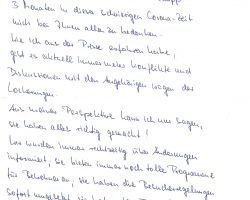 3 Monaten in dieser schwierigen Corona-Zeit
mich bei Ihnen allen zu bedanken.
Wie ich aus der Presse erfahren habe,
gibt es aktuell immer mehr Konflikte und
Diskussionen mit den Angehörigen wegen der
Lockerungen.
Aus meiner Perspektive kann ich nur sagen,
sie haben alles richtig gemacht!
Wir wurden immer rechtzeitig über Änderungen
informiert, sie bieten immer noch tolle Programme
für Bewohner an, sie haben die Besuchsregelungen
sofort umgesetzt